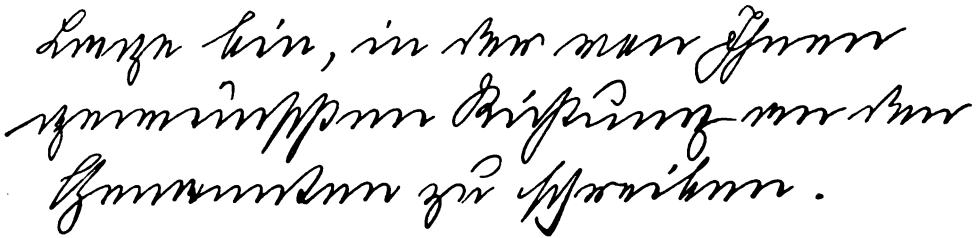 Lage bin, in der von Ihnen
gewünschten Richtung an den
Genannten zu schreiben.